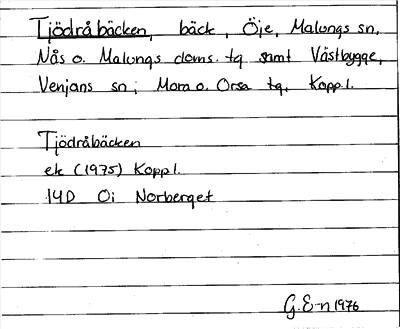 Tjödråbäcken, bäck, Öje, Malungs sn,
Nås o. Malungs doms. tg samt Västbygge,
Venjans sn, Mora o. Orsa tg, Kopp l.
Tjödråbäcken
ek (1975) Kopp l.
14D 0i Norberget
G.E-n 1976